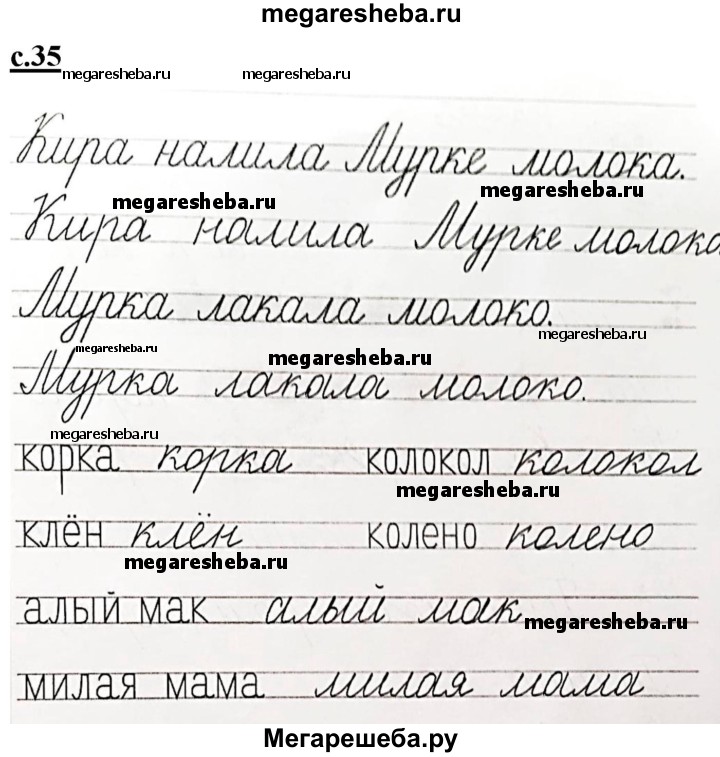 megaresheba.ru
с.35
megaresheba.ru megaresheba.ru
Кира налила Мурке молока.
megaresheba.ru megaresheba.ru
Кира налила Мурке молока
Мурка лакала молоко.
megaresheba.ru
megaresheba.ru megaresheba.ru
Мурка лакала молоко.
megaresheba.ru
корка корка колокол колокол
megaresheba.ru
клён клён колено колено
megaresheba.ru
алый мак алый мак
megaresheba.ru
милая мама милая мама
Мегарешеба.ру